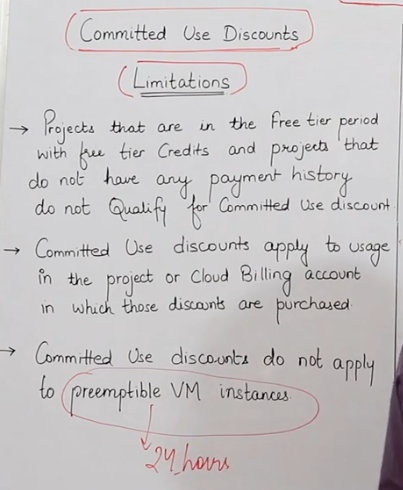 Committed Use Discounts
Limitations
→ Projects that are in the Free tier period
with free tier Credits and projects that
do not have any payment history
do not Qualify for Committed Use discount
→ Committed Use discounts apply to usage
in the project or Cloud Billing account
in which those discounts are purchased.
→ Committed Use discounts do not apply
to preemptible VM instances
24 hours